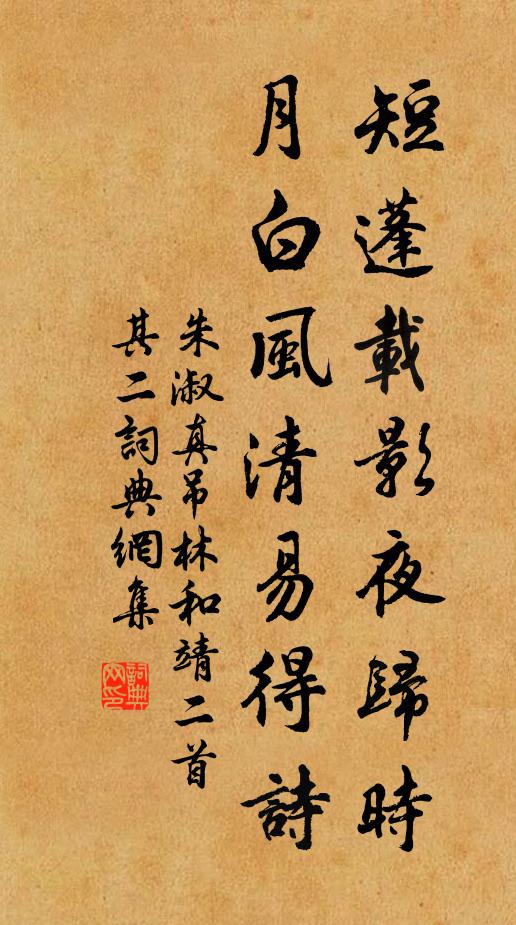 短蓬載影夜歸時
月白風清易得詩
朱淑真吊林和靖二首
其二詞典網集
詞典网印